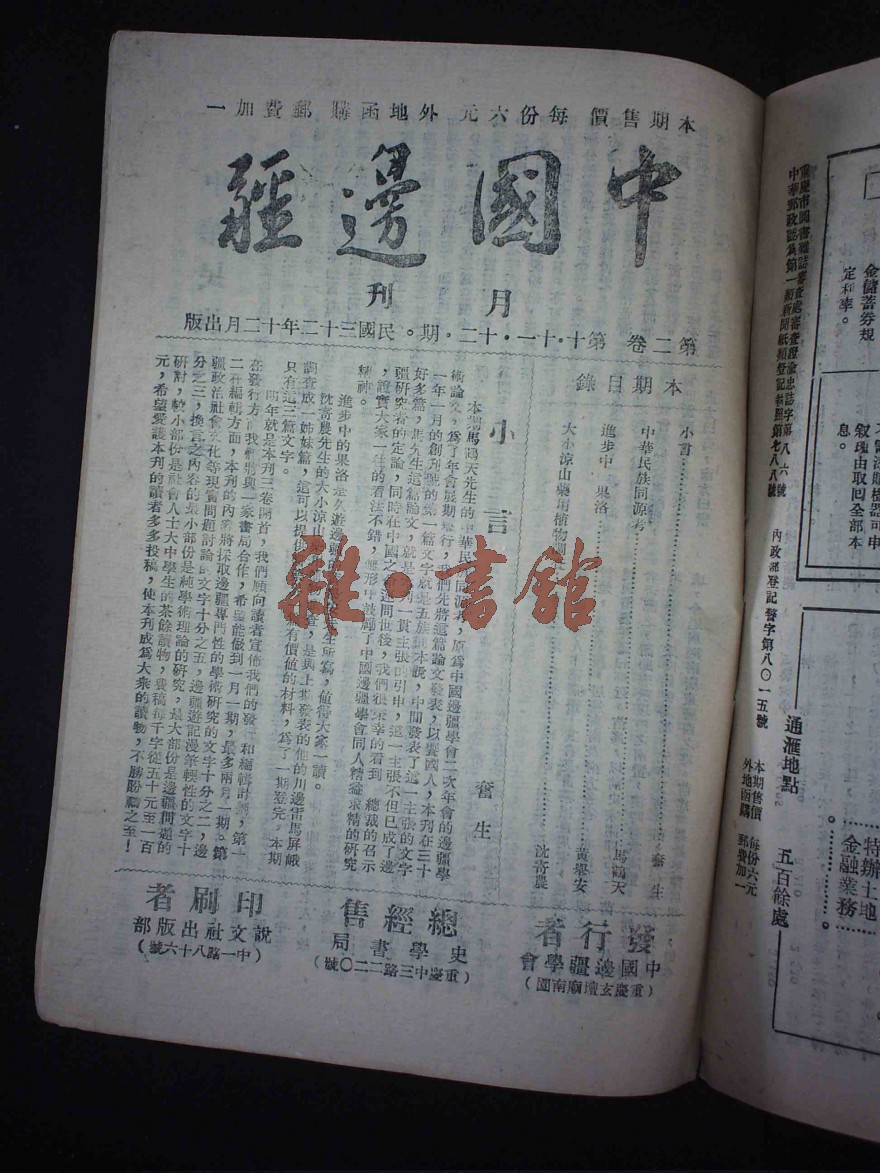 本期售價 每份六元 外地函購 郵費加一
中國邊疆
月刊
第二卷 第十·十一·十二·期。民國三十二年十二月出版
本期目錄
小言 奮生
中華民族同源考 馬鶴天
進步中 果洛 黃舉安
大小涼山藥用植物調查 沈嵩農
小言
奮生
本期馬鶴天先生的中華民族同源考，原爲中國邊疆學會二次年會的邊疆學
術論文，爲了年會展期舉行，我們先將這篇論文發表，以饗國人，本刊在三十
一年一月的創刊號的第一篇文字就是五族同本說，中間發表了這一主張的文字
好多篇，馬先生這篇論文，就是本刊一貫主張的引申，這一主張不但已成了邊
疆研究者的定論，同時在中國之命運問世後，我們很榮幸的看到 總裁的召示
，證實大家一年的看法不錯，無形中鼓勵了中國邊疆學會同人精益求精的研究
精神。
進步中的果洛是久遊邊疆的 生所寫，値得大家一讀。
沈嵩農先生的大小涼山 查，是與上期發表的他的川邊雷馬屏峨
調查成一姊妹篇，這可以提供 有價値的材料，爲了一期登完，本期
只有這三篇文字。
兩年就是本刊三卷開首，我們願向讀者宣佈我們的發行和編輯計劃，第一
在發行方面我們將與一家書局合作，希望能做到一月一期，最多兩月一期。第
二在編輯方面，本刊的內容將採取邊疆專門性的學術研究的文字十分之二，邊
疆政治社會文化等現實問題討論的文字十分之五，邊疆遊記漫筆輕性的文字十
分之三，換言之內容的最小部份是純學術理論的研究，最大部份是邊疆問題的
研討，較小部份是社會人士大中學生的茶餘讀物，費稿每千字從五十元至一百
元，希望愛護本刊的讀者多多投稿，使本刊成爲大衆的讀物，不勝盼禱之至！
發行者
中國邊疆學會
（重慶玄壇廟南園）
總經售
史學書局
（重慶中三路二二〇號）
印刷者
說文社出版部
（中一路八十六號）
雜·書館
金儲蓄券規
定利率。
叙瑰由取回全部本
息。
重慶市圖書雜誌審查處審查證渝忠誌字第八六號
中華郵政認爲第一類新聞紙類登記執照第七八八號
內政部登記警字第八〇一五號
本期售價 每份六元
外地函購 郵費加一
通滙地點 五百餘處
特辦土地
金融業務